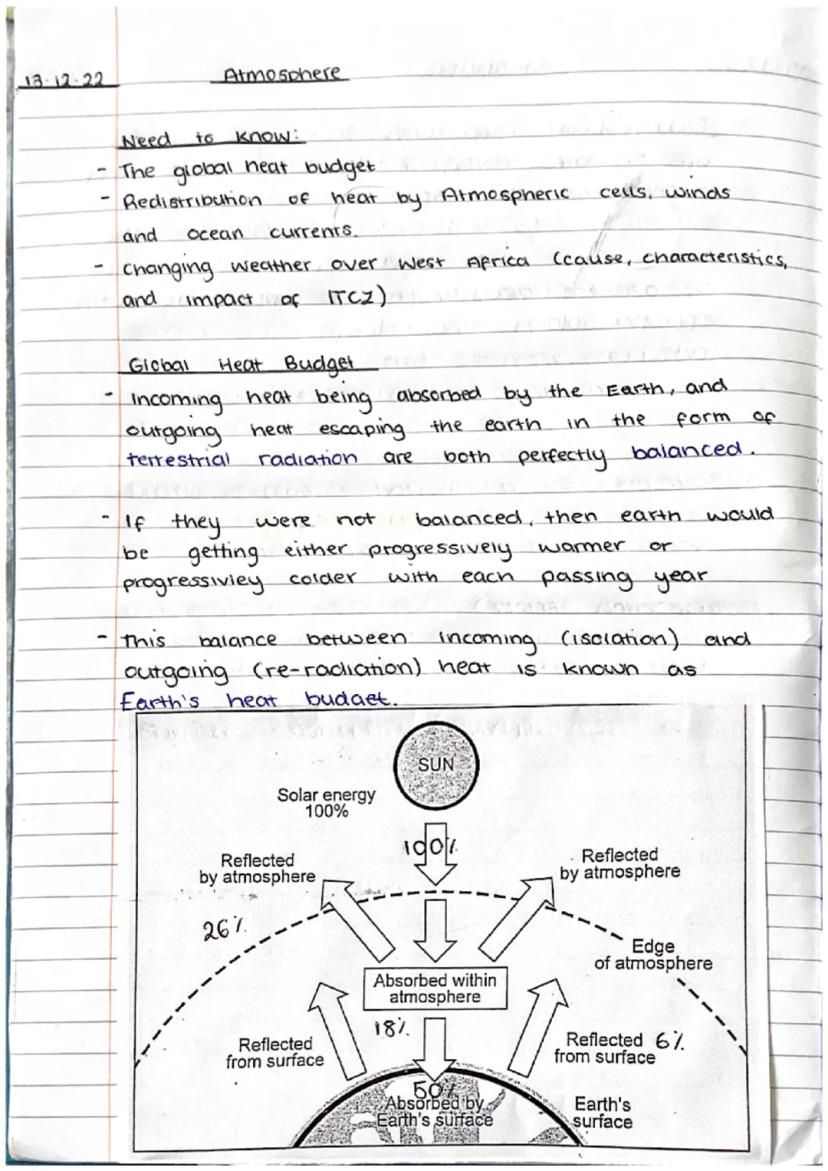 13.12.22 Atmosphere
Need to know:
- The global heat budget
- Redistribution of heat by Atmospheric cells, winds
and ocean currents.
- Changing weather over West Africa (cause, characteristics,
and impact of ITCZ)
Global Heat Budget
- Incoming heat being absorbed by the Earth, and
outgoing heat escaping the earth in the form of
terrestrial radiation are both perfectly balanced.
- If they were not balanced, then earth would
be getting either progressively warmer or
progressivley colder with each passing year
- This balance between incoming (isolation) and
outgoing (re-radiation) heat is known as
Earth's heat budget.
SUN
Solar energy
100%
100%
Reflected
by atmosphere
Reflected
by atmosphere
26%
Edge
of atmosphere
Absorbed within
atmosphere
18%
Reflected
from surface
Reflected 6%
from surface
50%
Absorbed by
Earth's surface
Earth's
surface